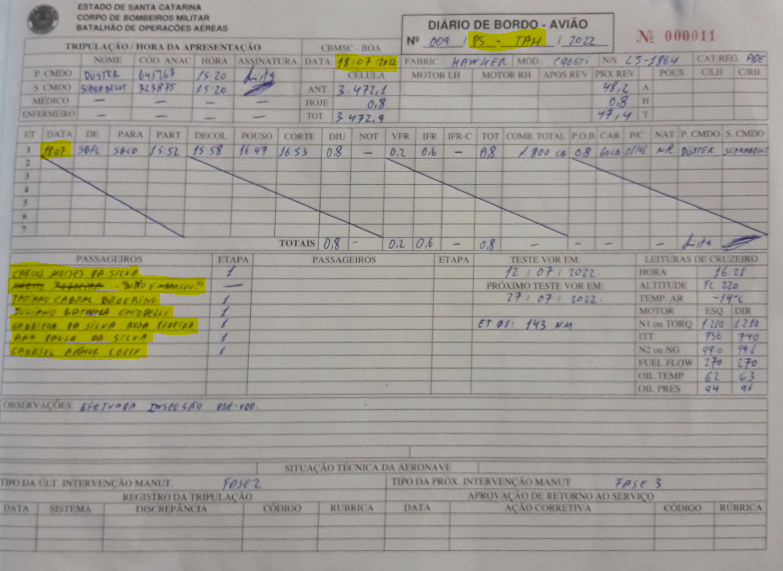 ESTADO DE SANTA CATARINA
CORPO DE BOMBEIROS MILITAR
BATALHÃO DE OPERAÇÕES AÉREAS
DIÁRIO DE BORDO - AVIÃO
Nº 009 / PS - TAH / 2022
Nº 000011
TRIPULAÇÃO / HORA DA APRESENTAÇÃO CBMSC - BOA DATA 18/07/2022 FABRIC. HAWKER MOD: N/S CAT.REG. ADE
NOME CÓD. ANAC HORA ASSINATURA CÉLULA MOTOR LH MOTOR RH APOS REV PRX REV POUS. C/LH C/RH
P. CMDO DÜSTER 15:20 ANT 3.472,1 48,2 A
S. CMDO 15:20 HOJE 0,8 0,8 H
MÉDICO — — — TOT 3.472,9 47,4 T
ENFERMEIRO — — —
ET DATA DE PARA PART DECOL POUSO CORTE DIU NOT VFR IFR IFR-C TOT COMB. TOTAL P.O.B CAR P/C NAT P. CMDO S. CMDO
1 18/07 SBFL 15:52 15:58 16:47 16:53 0.8 — 0.2 0.6 — 0.8 1.800 08 DÜSTER
2
3
4
5
6
7
TOTAIS 0.8 — 0.2 0.6 — 0.8
PASSAGEIROS ETAPA PASSAGEIROS ETAPA TESTE VOR EM: LEITURAS DE CRUZEIRO
CARLOS MOISES DA SILVA 1 12 / 07 / 2022. HORA 16 21
"NÃO EMBARCOU" — PRÓXIMO TESTE VOR EM: ALTITUDE FL 220
TATIANE CABRAL 1 27 / 07 / 2022. TEMP. AR -19°C
JULIANO 1 MOTOR ESQ DIR
GABRIELA DA SILVA ROSA 1 ET 01: 143 NM N1 ou TORQ 1210 1210
ANA PAULA DA SILVA 1 ITT 756 740
GABRIEL ARTHUR 1 N2 ou NG 99.0 99.1
FUEL FLOW 270 270
OIL TEMP 62 63
OIL PRES 94
OBSERVAÇÕES EFETUADA INSPEÇÃO
SITUAÇÃO TÉCNICA DA AERONAVE
TIPO DA ÚLT. INTERVENÇÃO MANUT. FASE 2 TIPO DA PRÓX. INTERVENÇÃO MANUT FASE 3
REGISTRO DA TRIPULAÇÃO APROVAÇÃO DE RETORNO AO SERVIÇO
DATA SISTEMA DISCREPÂNCIA CÓDIGO RÚBRICA DATA AÇÃO CORRETIVA CÓDIGO RÚBRICA